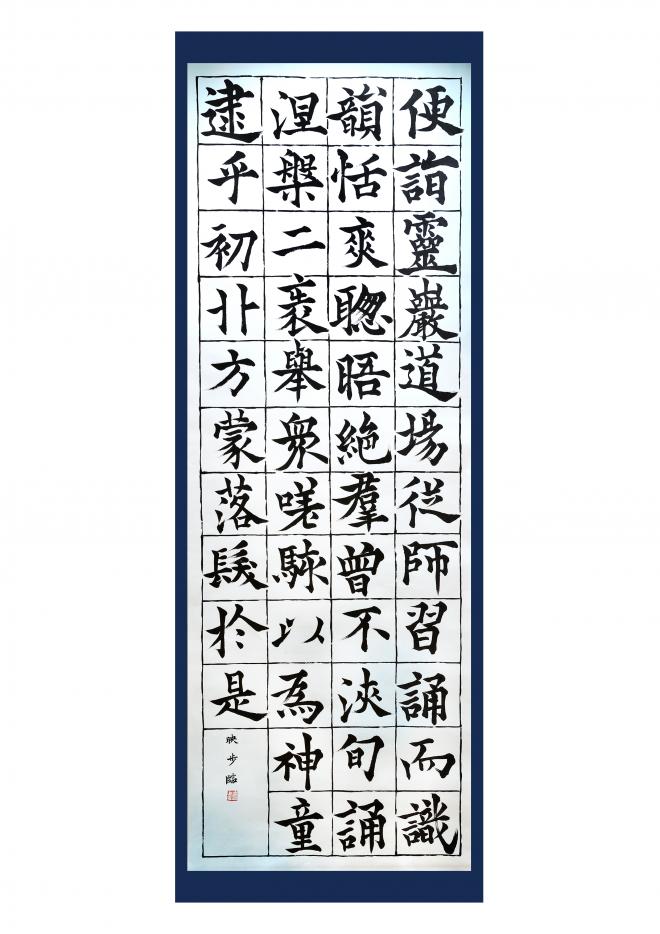 便詣靈巖道場從師習誦而識
韻恬爽聦晤絶羣曾不浹旬誦
涅槃二袠舉衆嗟駭以為神童
逮乎初丱方蒙落髮於是
映步臨